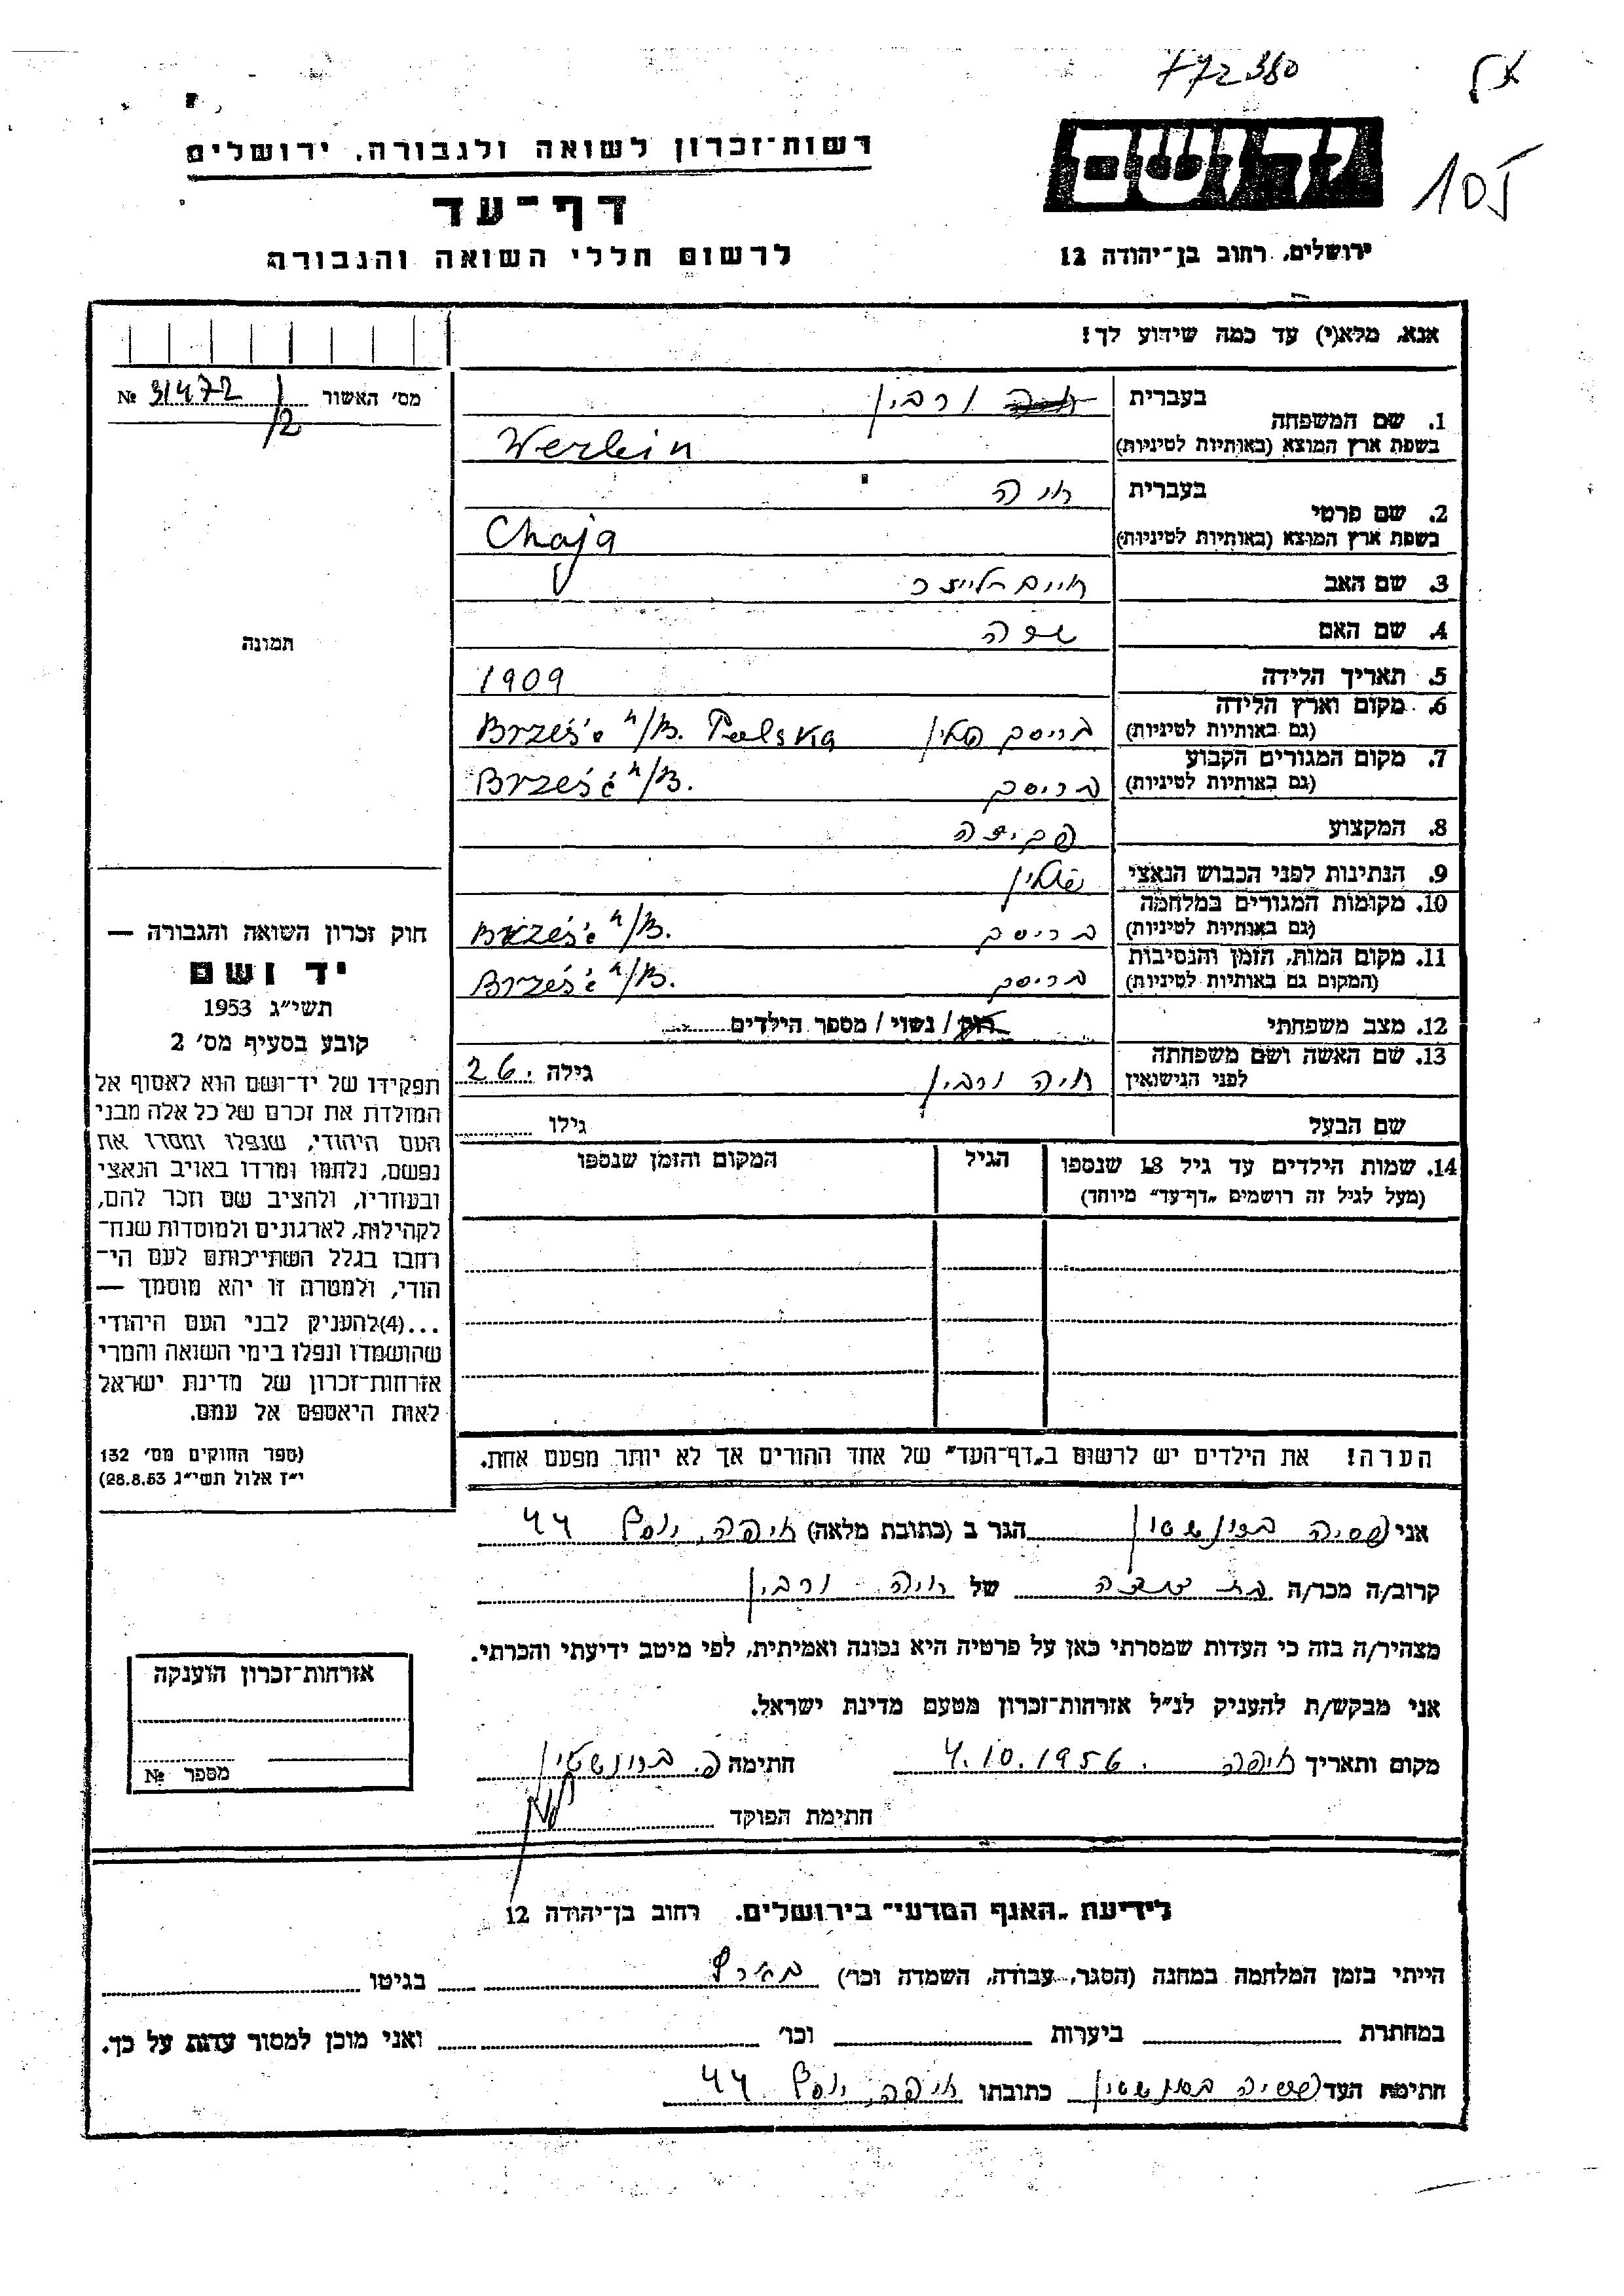 772380
105
רשות־זכרון לשואה ולגבורה, ירושלים
יד ושם
דף־עד
לרשום חללי השואה והגבורה
ירושלים, רחוב בן־יהודה 12
אנא, מלא(י) עד כמה שידוע לך!
מס׳ האשור 31472 №
/2
1. שם המשפחה
בעברית ורבין
בשפת ארץ המוצא (באותיות לטיניות) Werbin
2. שם פרטי
בעברית חיה
בשפת ארץ המוצא (באותיות לטיניות) Chaja
3. שם האב חיים
4. שם האם שרה
תמונה
5. תאריך הלידה 1909
6. מקום וארץ הלידה
(גם באותיות לטיניות) בריסק פולין Brześć n/B. Polska
7. מקום המגורים הקבוע
(גם באותיות לטיניות) בריסק Brześć n/B.
8. המקצוע
9. הנתינות לפני הכבוש הנאצי פולין
10. מקומות המגורים במלחמה
(גם באותיות לטיניות) בריסק Brześć n/B.
11. מקום המות, הזמן והנסיבות
(המקום גם באותיות לטיניות) בריסק Brześć n/B.
12. מצב משפחתי רוק / נשוי / מספר הילדים
13. שם האשה ושם משפחתה
לפני הנישואין חיה ורבין גילה 26
שם הבעל גילו
14. שמות הילדים עד גיל 18 שנספו
(מעל לגיל זה רושמים „דף־עד” מיוחד)
הגיל
המקום והזמן שנספו
חוק זכרון השואה והגבורה —
יד ושם
תשי״ג 1953
קובע בסעיף מס׳ 2
תפקידו של יד־ושם הוא לאסוף אל
המולדת את זכרם של כל אלה מבני
העם היהודי, שנפלו ומסרו את
נפשם, נלחמו ומרדו באויב הנאצי
ובעוזריו, ולהציב שם וזכר להם,
לקהילות, לארגונים ולמוסדות שנח־
רבו בגלל השתייכותם לעם הי־
הודי, ולמטרה זו יהא מוסמך —
...(4)להעניק לבני העם היהודי
שהושמדו ונפלו בימי השואה והמרי
אזרחות־זכרון של מדינת ישראל
לאות היאספם אל עמם.
(ספר החוקים מס׳ 132
י״ז אלול תשי״ג 28.8.53)
הערה! את הילדים יש לרשום ב„דף־העד” של אחד ההורים אך לא יותר מפעם אחת.
אני פסיה ברונשטין הגר ב (כתובת מלאה) חיפה, יוסף 44
קרוב/ה מכר/ה בת דודה של חיה ורבין
מצהיר/ה בזה כי העדות שמסרתי כאן על פרטיה היא נכונה ואמיתית, לפי מיטב ידיעתי והכרתי.
אני מבקש/ת להעניק לנ״ל אזרחות־זכרון מטעם מדינת ישראל.
מקום ותאריך חיפה 4.10.1956 חתימה פ. ברונשטין
חתימת הפוקד
אזרחות־זכרון הוענקה
מספר №
לידיעת „האגף המדעי” בירושלים. רחוב בן־יהודה 12
הייתי בזמן המלחמה במחנה (הסגר, עבודה, השמדה וכו׳) בארץ בגיטו
במחתרת ביערות וכו׳ ואני מוכן למסור עדות על כך.
חתימת העד פסיה ברונשטין כתובתו חיפה, יוסף 44